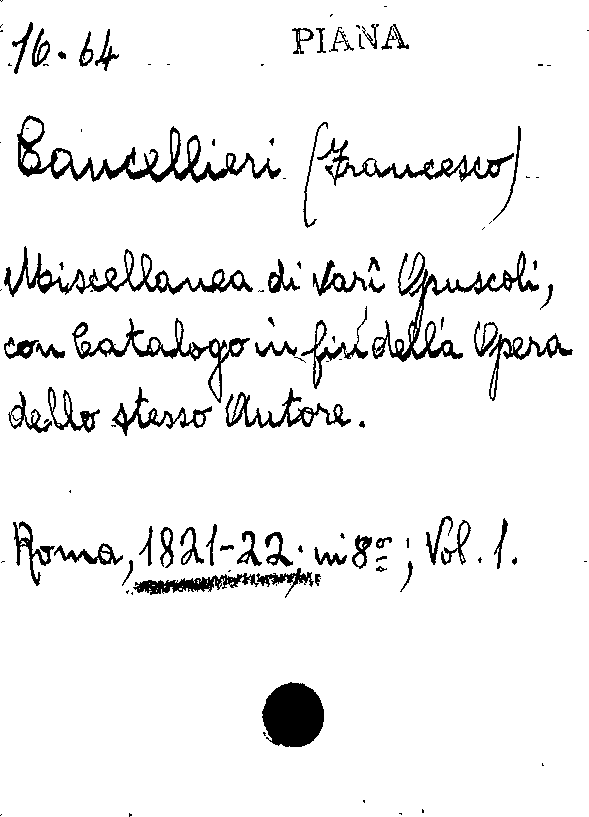 16.64
PIANA
Cancellieri (Francesco)
Miscellanea di varî Opuscoli,
con Catalogo in fin della Opera
dello stesso Autore.
Roma, 1821-22. in 8º; Vol. 1.